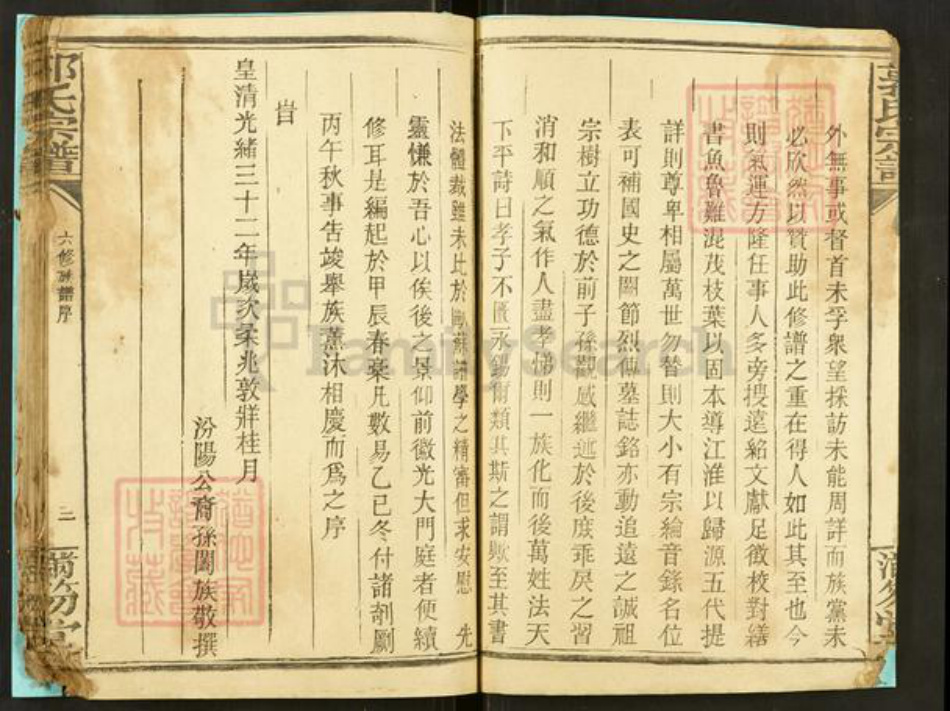 郭氏宗譜
外無事或督首未孚衆望採訪未能周詳而族黨未
必欣然以贊助此修譜之重在得人如此其至也今
則氣運方隆任事人多旁搜遠紹文獻足徵校對繕
書魚魯難混茂枝葉以固本導江淮以歸源五代提
詳則尊卑相屬萬世勿替則大小有宗綸音錄名位
表可補國史之闕節烈傳墓誌銘亦動追遠之誠祖
宗樹立功德於前子孫觀感繼述於後庶乖戾之習
消和順之氣作人盡孝悌則一族化而後萬姓法天
下平詩曰孝子不匱永錫爾類其斯之謂歟至其書
法體裁雖未比於歐蘇譜學之精審但求安慰 先
靈慊於吾心以俟後之景仰前徽光大門庭者便續
修耳是編起於甲辰春稾凡數易乙巳冬付諸剞劂
丙午秋事告竣舉族薰沐相慶而爲之序
旹
皇清光緒三十二年歲次柔兆敦牂桂月
汾陽公裔孫闔族敬撰
郭氏宗譜
六修族譜序
二
滿笏堂
FamilySearch